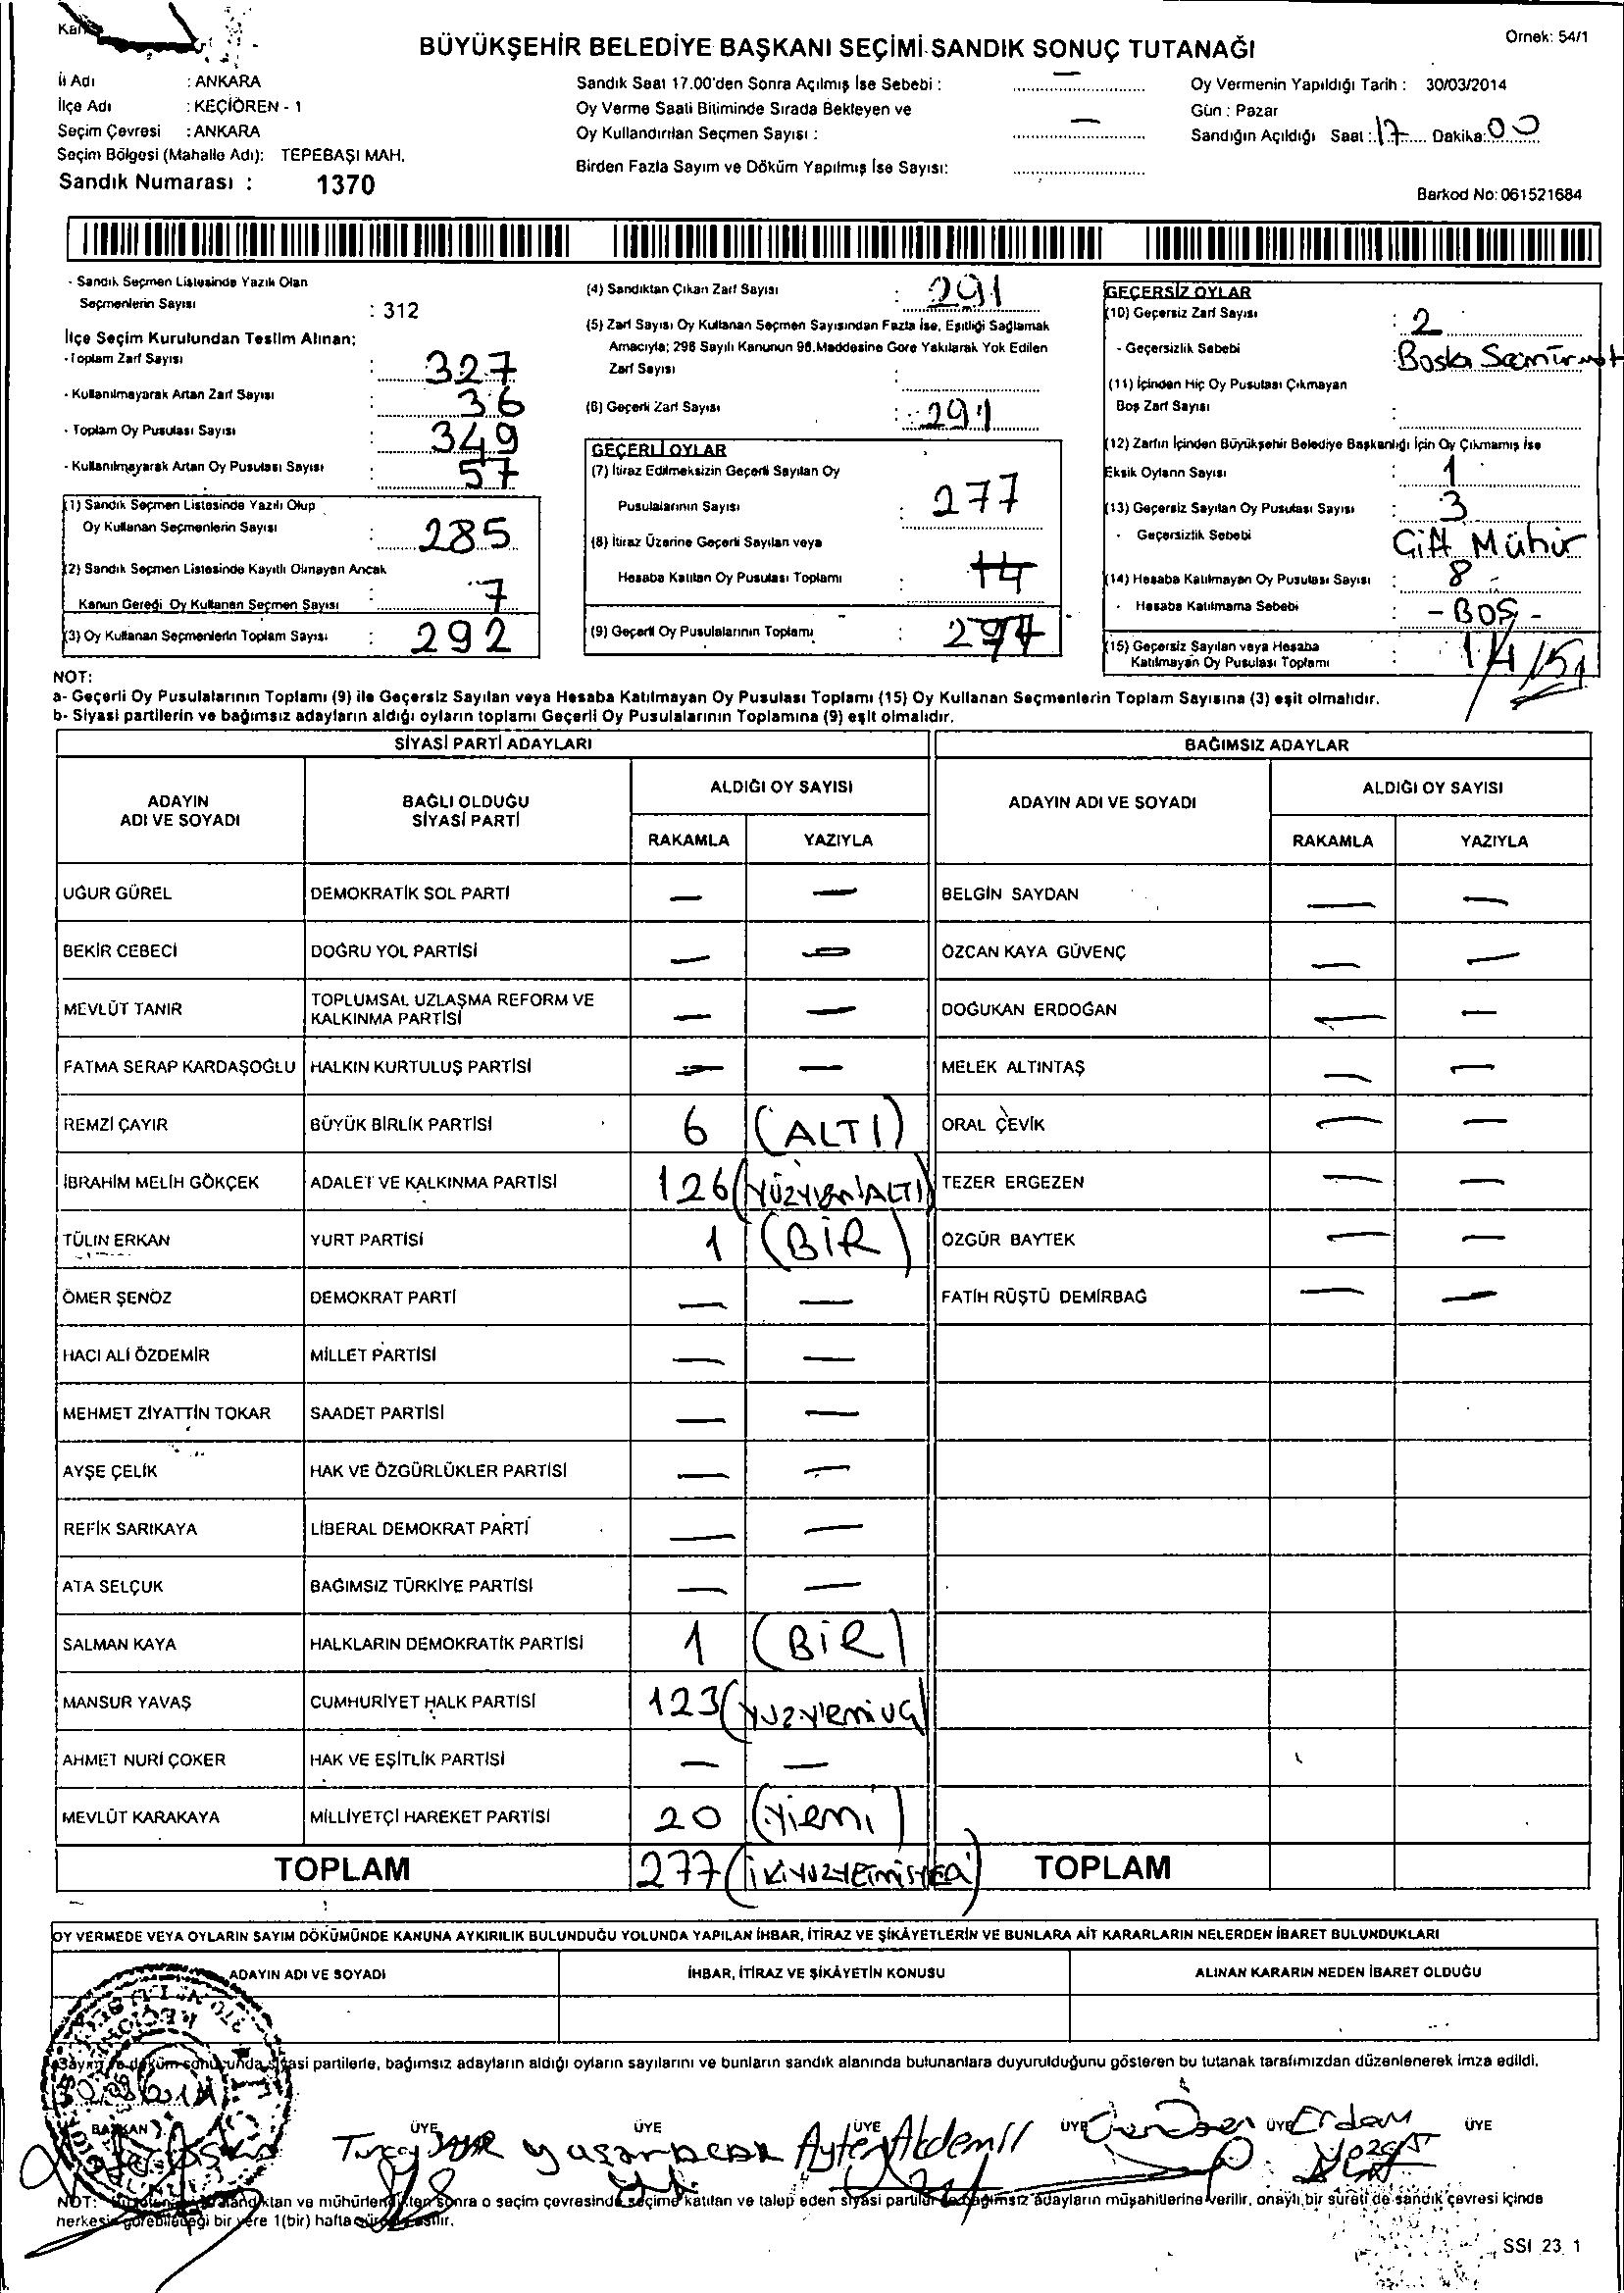 Örnek: 54/1
BÜYÜKŞEHİR BELEDİYE BAŞKANI SEÇİMİ SANDIK SONUÇ TUTANAĞI
İl Adı : ANKARA
İlçe Adı : KEÇİÖREN - 1
Seçim Çevresi : ANKARA
Seçim Bölgesi (Mahalle Adı): TEPEBAŞI MAH.
Sandık Numarası : 1370
Sandık Saat 17.00'den Sonra Açılmış İse Sebebi : —
Oy Verme Saati Bitiminde Sırada Bekleyen ve
Oy Kullandırılan Seçmen Sayısı : —
Birden Fazla Sayım ve Döküm Yapılmış İse Sayısı:
Oy Vermenin Yapıldığı Tarih : 30/03/2014
Gün : Pazar
Sandığın Açıldığı Saat : 17 Dakika: 00
Barkod No: 061521684
- Sandık Seçmen Listesinde Yazılı Olan
Seçmenlerin Sayısı : 312
İlçe Seçim Kurulundan Teslim Alınan:
- Toplam Zarf Sayısı : 327
- Kullanılmayarak Artan Zarf Sayısı : 36
- Toplam Oy Pusulası Sayısı : 349
- Kullanılmayarak Artan Oy Pusulası Sayısı : 57
(1) Sandık Seçmen Listesinde Yazılı Olup
Oy Kullanan Seçmenlerin Sayısı : 285
(2) Sandık Seçmen Listesinde Kayıtlı Olmayan Ancak
Kanun Gereği Oy Kullanan Seçmen Sayısı : 7
(3) Oy Kullanan Seçmenlerin Toplam Sayısı : 292
(4) Sandıktan Çıkan Zarf Sayısı : 291
(5) Zarf Sayısı Oy Kullanan Seçmen Sayısından Fazla İse, Eşitliği Sağlamak
Amacıyla; 298 Sayılı Kanunun 98.Maddesine Göre Yakılarak Yok Edilen
Zarf Sayısı :
(6) Geçerli Zarf Sayısı : 291
GEÇERLİ OYLAR
(7) İtiraz Edilmeksizin Geçerli Sayılan Oy
Pusulalarının Sayısı : 277
(8) İtiraz Üzerine Geçerli Sayılan veya
Hesaba Katılan Oy Pusulası Toplamı :
(9) Geçerli Oy Pusulalarının Toplamı :
GEÇERSİZ OYLAR
(10) Geçersiz Zarf Sayısı : 2
- Geçersizlik Sebebi :
(11) İçinden Hiç Oy Pusulası Çıkmayan
Boş Zarf Sayısı :
(12) Zarfın İçinden Büyükşehir Belediye Başkanlığı İçin Oy Çıkmamış İse
Eksik Oyların Sayısı : 1
(13) Geçersiz Sayılan Oy Pusulası Sayısı : 3
- Geçersizlik Sebebi Çift Mühür
(14) Hesaba Katılmayan Oy Pusulası Sayısı : 8
- Hesaba Katılmama Sebebi : - BOŞ -
(15) Geçersiz Sayılan veya Hesaba
Katılmayan Oy Pusulası Toplamı :
NOT:
a- Geçerli Oy Pusulalarının Toplamı (9) ile Geçersiz Sayılan veya Hesaba Katılmayan Oy Pusulası Toplamı (15) Oy Kullanan Seçmenlerin Toplam Sayısına (3) eşit olmalıdır.
b- Siyasi partilerin ve bağımsız adayların aldığı oyların toplamı Geçerli Oy Pusulalarının Toplamına (9) eşit olmalıdır.
SİYASİ PARTİ ADAYLARI BAĞIMSIZ ADAYLAR
ADAYIN ADI VE SOYADI BAĞLI OLDUĞU SİYASİ PARTİ ALDIĞI OY SAYISI ADAYIN ADI VE SOYADI ALDIĞI OY SAYISI
RAKAMLA YAZIYLA RAKAMLA YAZIYLA
UĞUR GÜREL DEMOKRATİK SOL PARTİ — — BELGİN SAYDAN — —
BEKİR CEBECİ DOĞRU YOL PARTİSİ — — ÖZCAN KAYA GÜVENÇ — —
MEVLÜT TANIR TOPLUMSAL UZLAŞMA REFORM VE KALKINMA PARTİSİ — — DOĞUKAN ERDOĞAN — —
FATMA SERAP KARDAŞOĞLU HALKIN KURTULUŞ PARTİSİ — — MELEK ALTINTAŞ — —
REMZİ ÇAYIR BÜYÜK BİRLİK PARTİSİ 6 (ALTI) ORAL ÇEVİK — —
İBRAHİM MELİH GÖKÇEK ADALET VE KALKINMA PARTİSİ 126 TEZER ERGEZEN — —
TÜLİN ERKAN YURT PARTİSİ 1 (BİR) ÖZGÜR BAYTEK — —
ÖMER ŞENÖZ DEMOKRAT PARTİ — — FATİH RÜŞTÜ DEMİRBAĞ — —
HACI ALİ ÖZDEMİR MİLLET PARTİSİ — —
MEHMET ZİYATTİN TOKAR SAADET PARTİSİ — —
AYŞE ÇELİK HAK VE ÖZGÜRLÜKLER PARTİSİ — —
REFİK SARIKAYA LİBERAL DEMOKRAT PARTİ — —
ATA SELÇUK BAĞIMSIZ TÜRKİYE PARTİSİ — —
SALMAN KAYA HALKLARIN DEMOKRATİK PARTİSİ 1 (BİR)
MANSUR YAVAŞ CUMHURİYET HALK PARTİSİ 123
AHMET NURİ ÇOKER HAK VE EŞİTLİK PARTİSİ — —
MEVLÜT KARAKAYA MİLLİYETÇİ HAREKET PARTİSİ 20 (Yirmi)
TOPLAM 277 TOPLAM
OY VERMEDE VEYA OYLARIN SAYIM DÖKÜMÜNDE KANUNA AYKIRILIK BULUNDUĞU YOLUNDA YAPILAN İHBAR, İTİRAZ VE ŞİKÂYETLERİN VE BUNLARA AİT KARARLARIN NELERDEN İBARET BULUNDUKLARI
ADAYIN ADI VE SOYADI İHBAR, İTİRAZ VE ŞİKÂYETİN KONUSU ALINAN KARARIN NEDEN İBARET OLDUĞU
Sayım ve döküm sonucunda siyasi partilerle, bağımsız adayların aldığı oyların sayılarını ve bunların sandık alanında bulunanlara duyurulduğunu gösteren bu tutanak tarafımızdan düzenlenerek imza edildi.
BAŞKAN ÜYE ÜYE ÜYE ÜYE ÜYE ÜYE
Ayten Akdemir
NOT: sonra o seçim çevresinde seçime katılan ve talep eden siyasi partiler bağımsız adayların müşahitlerine verilir, onaylı bir sureti de sandık çevresi içinde
herkesin görebileceği bir yere 1(bir) hafta
SSI 23 1